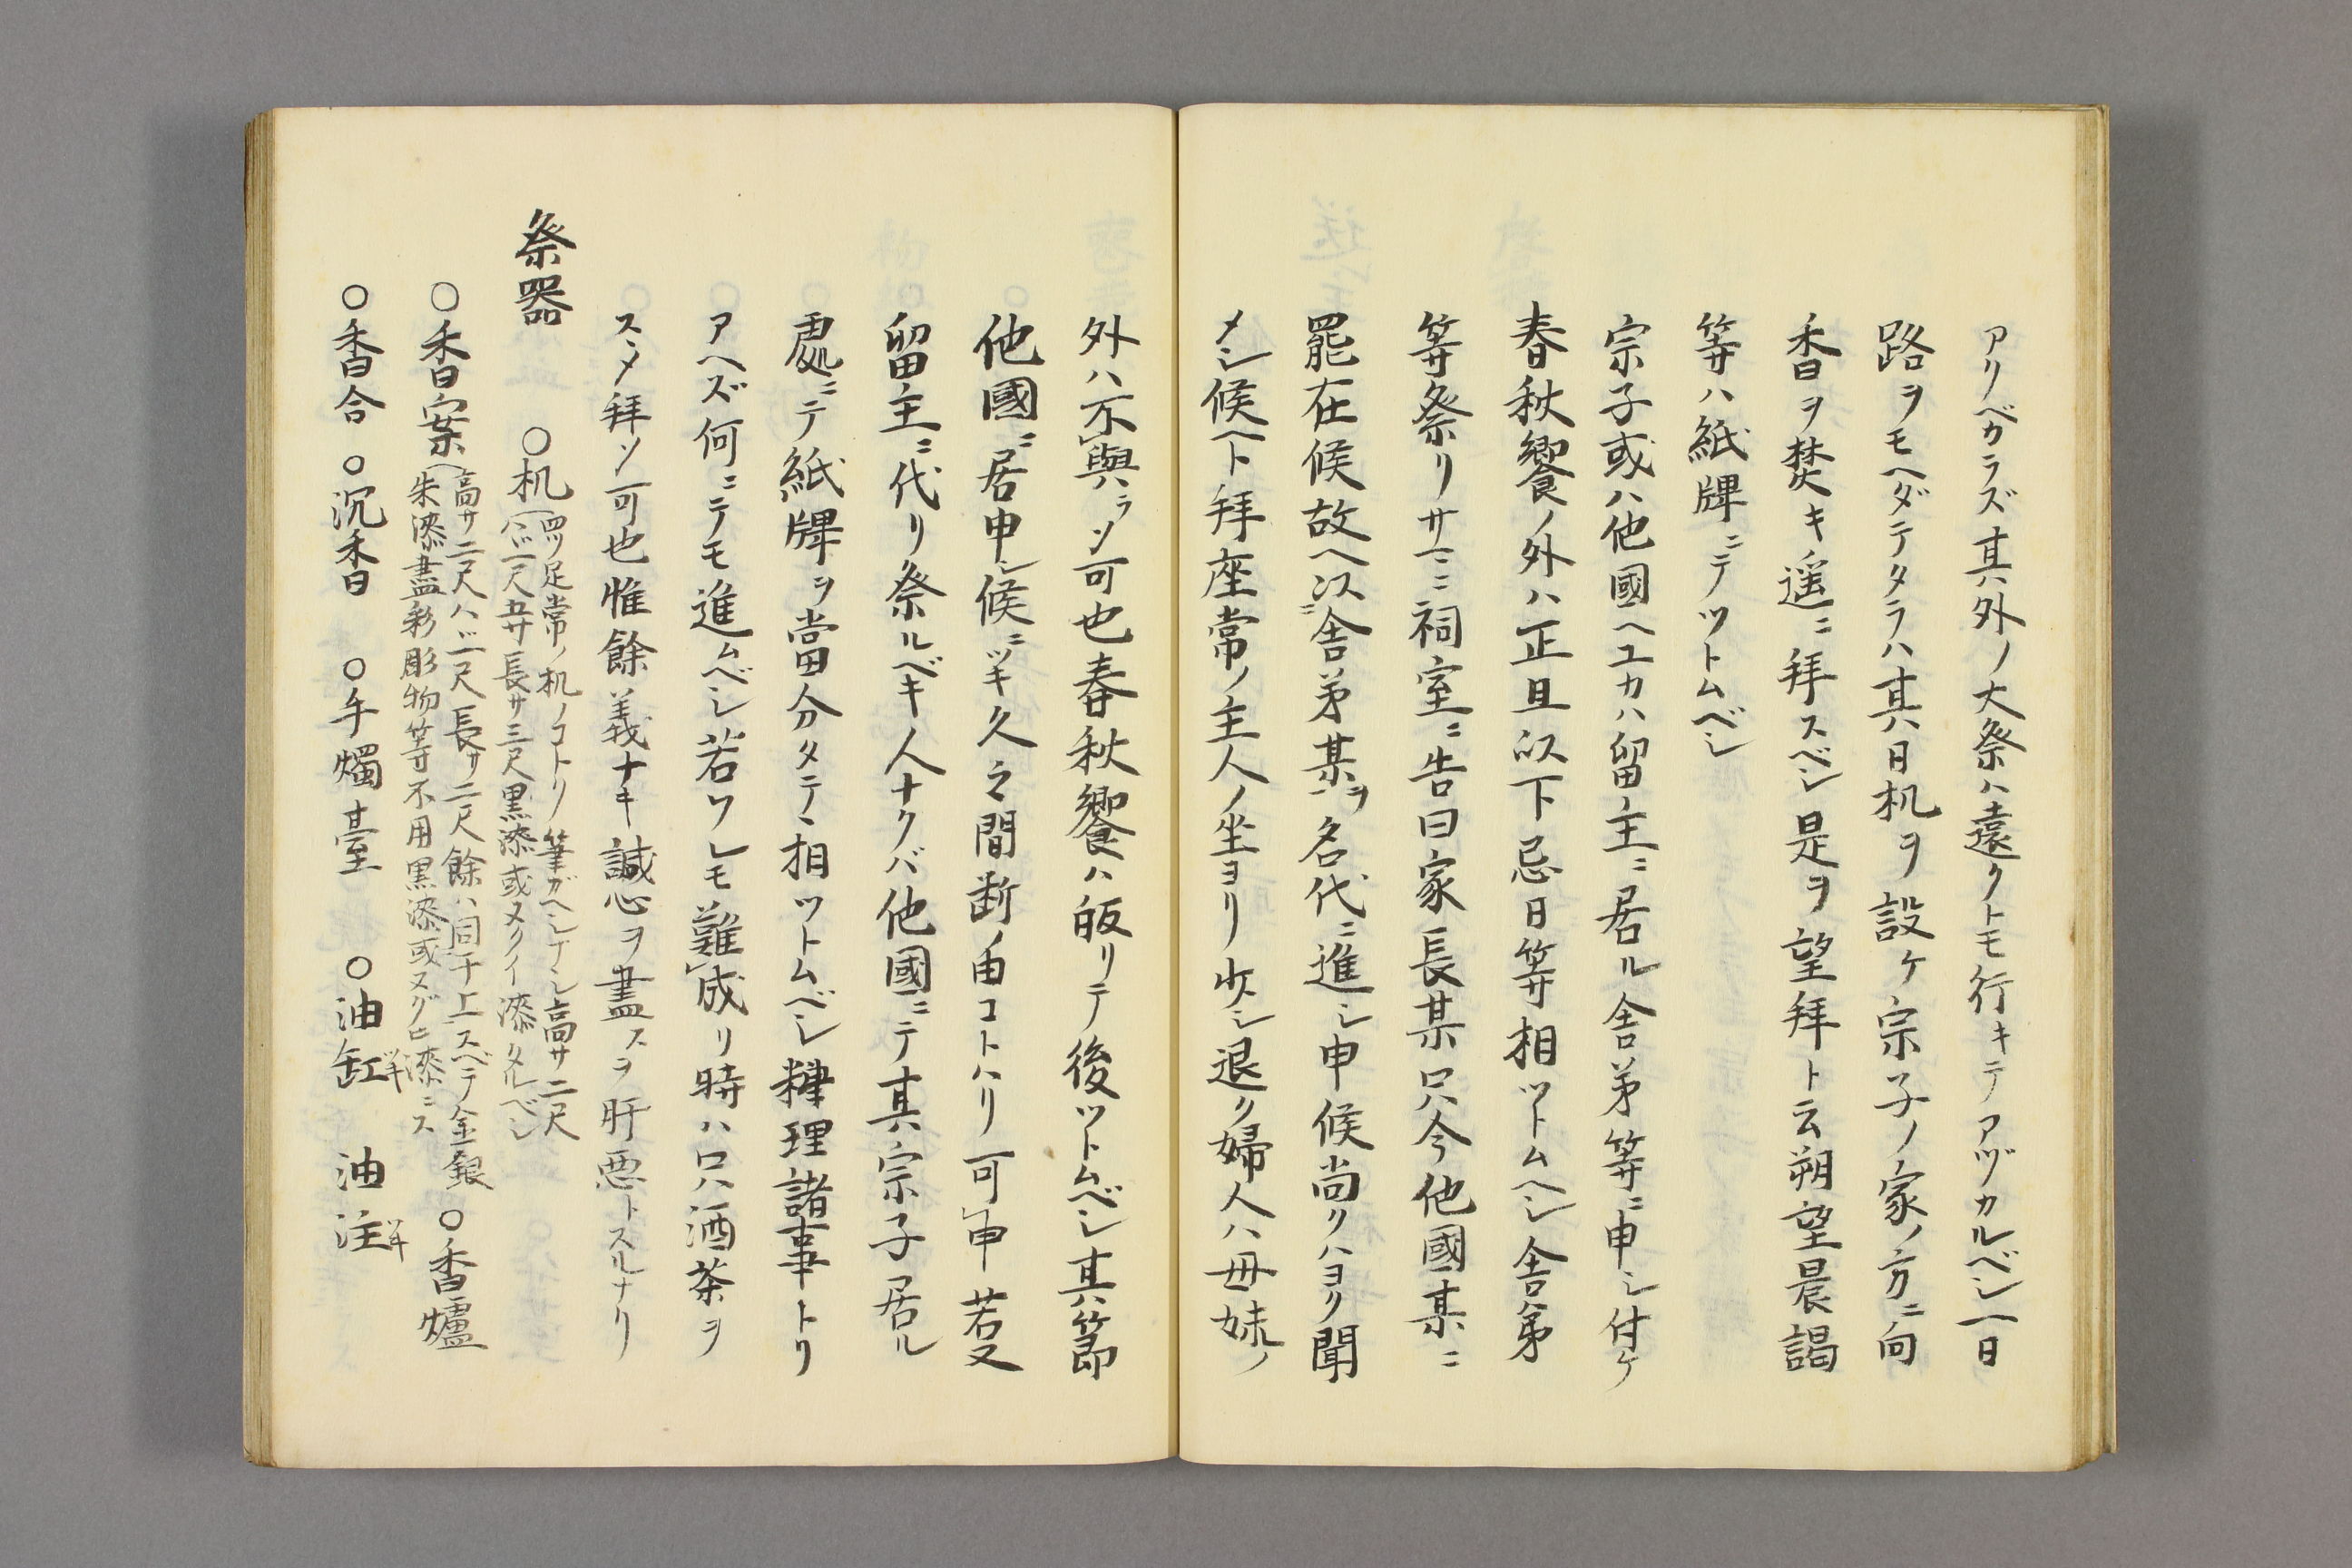 アリベカラズ其外ノ大祭ハ遠クトモ行キテアヅカルベシ一日
路ヲモヘダテタラハ其日机ヲ設ケ宗子ノ家ノ方ニ向
香ヲ焚キ遥ニ拝スベシ是ヲ望拜ト云朔望晨謁
等ハ紙牌ニテツトムベシ
宗子或ハ他國ヘユカハ留主ニ居ル舎弟等ニ申シ付ケ
春秋饗ノ外ハ正旦以下忌日等相ツトムヘシ舎弟
等祭リサマニ祠室ニ告曰家長某只今他國某ニ
罷在候故ヘ以舎弟某ヲ名代ニ進シ申候尚クハヨク聞
メシ候ヘト拜座常ノ主人ノ坐ヨリ少シ退ク婦人ハ母妹ノ
外ハ不與ラソ可也春秋饗ハ皈リテ後ツトムベシ其節
他國ニ居申シ候ニツキ久々間断ノ由コトハリ可申若又
留主ニ代リ祭ルベキ人ナクバ他國ニテ其宗子居ル
處ニテ紙牌ヲ當分タテヽ相ツトムベシ料理諸事トリ
アヘズ何ニテモ進ムベシ若ソレモ難成リ時ハ只酒茶ヲ
スヽメ拜ソ可也惟餘義ナキ誠心ヲ盡スヲ肝要トスルナリ
祭器 〇机
四ツ足常ノ机ノコトリ筆ガヘシナシ高サ二尺
ハヾ一尺五寸長サ三尺黒漆或ヌクイ漆タルベシ
〇香案
高サ二尺ハヾ一尺長サ二尺餘ハ同于上スベテ金銀
朱漆畫彩彫物等不用黒漆或ヌグヒ漆ニス
〇香爐
〇香合 〇沉香 〇手燭臺 〇油缸ツキ 油注ツキ